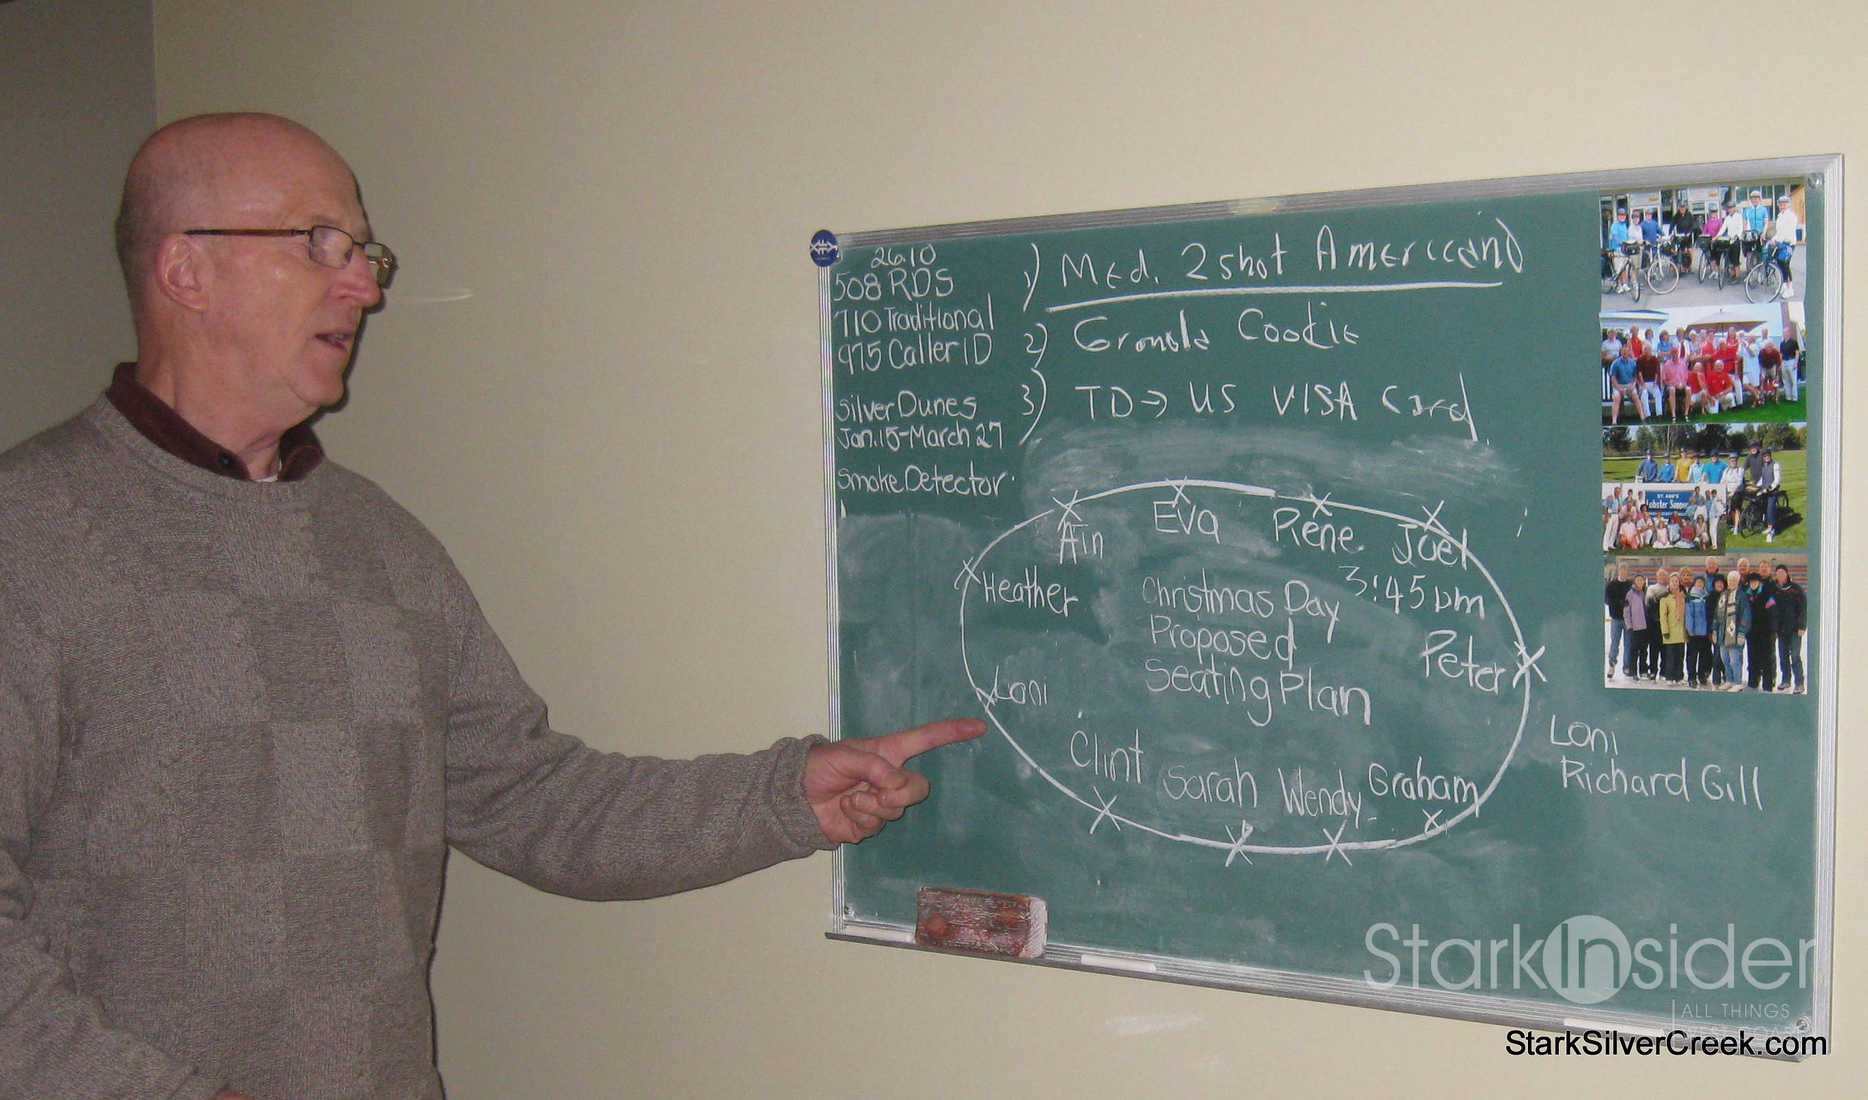 26.10
508 RDS
710 Traditional
975 Caller ID
Silver Dunes
Jan.15-March 27
Smoke Detector
1) Med. 2 shot Americano
2) Granola Cookie
3) TD → US VISA Card
Ain
Eva
Rene
Joel
Heather
Christmas Day
3:45 pm
Proposed
Seating Plan
Peter
Loni
Clint
Sarah
Wendy
Graham
Loni
Richard Gill
ST. ANN'S
Lobster Supper
StarkInsider
ALL THINGS
WEST COAST
StarkSilverCreek.com